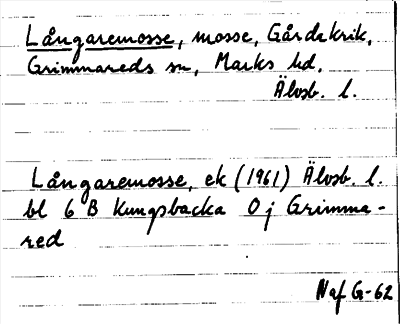 Långaremosse, mosse, Gårdskrik,
Grimmareds sn, Marks hd,
Älvsb. l.
Långaremosse, ek (1961) Älvsb. l.
bl 6 B Kungsbacka 0 j Grimma-
red
Naf G-62